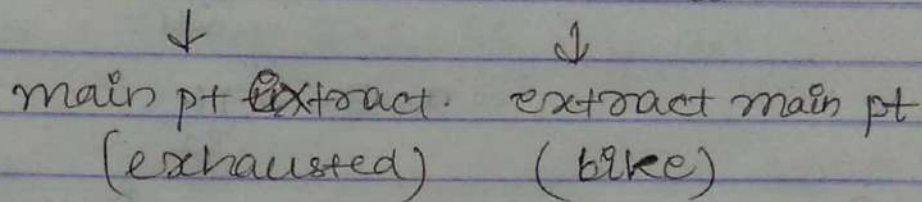 ↓ ↓
main pt extract. extract main pt
(exhausted) (bike)